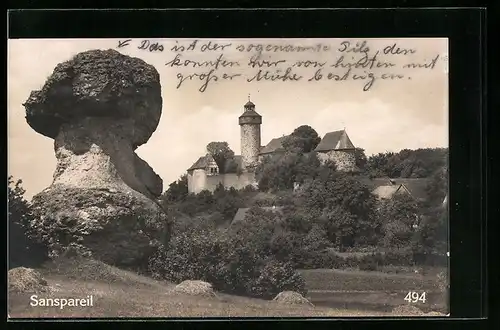 Das ist der sogenannte Pilz, den
konnten wir von hinten mit
großer Mühe besteigen.
Sanspareil
494